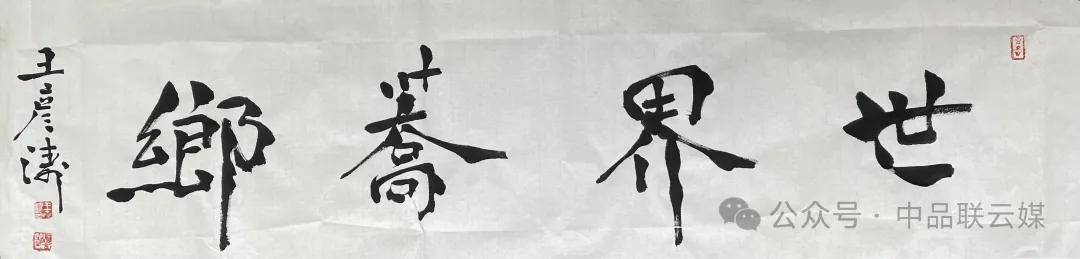 世界蕎鄉
王彦涛
公众号·中品联云媒